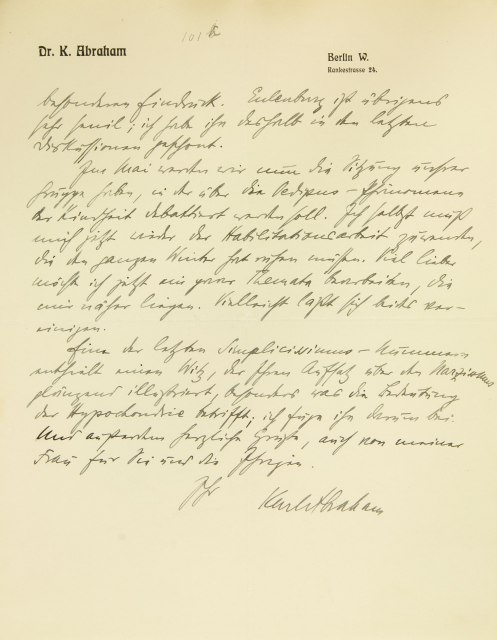 101 a
Dr. K. Abraham
Berlin W.
Rankestrasse 24.
besonderen Eindruck. Eulenburg ist übrigens
sehr senil; ich habe ihn deshalb in den letzten
Diskussionen geschont.
Im Mai werden wir nun die Sitzung unsrer
Gruppe haben, in der über die Oedipus-Phänomene
der Kindheit debattiert werden soll. Ich selbst muß
mich jetzt wieder der Habilitationsarbeit zuwenden,
die den ganzen Winter hat ruhen müssen. Viel lieber
möcht ich jetzt ein paar Themata bearbeiten, die
mir näher liegen. Vielleicht läßt sich beides ver-
einigen.
Eine der letzten Simplicissimus-Nummern
enthält einen Witz, der Ihren Aufsatz über den Narzißmus
glänzend illustriert, besonders was die Bedeutung
der Hypochondrie betrifft; ich füge ihn darum bei.
Und außerdem herzliche Grüße, auch von meiner
Frau für Sie und die Ihrigen.
Ihr
Karl Abraham